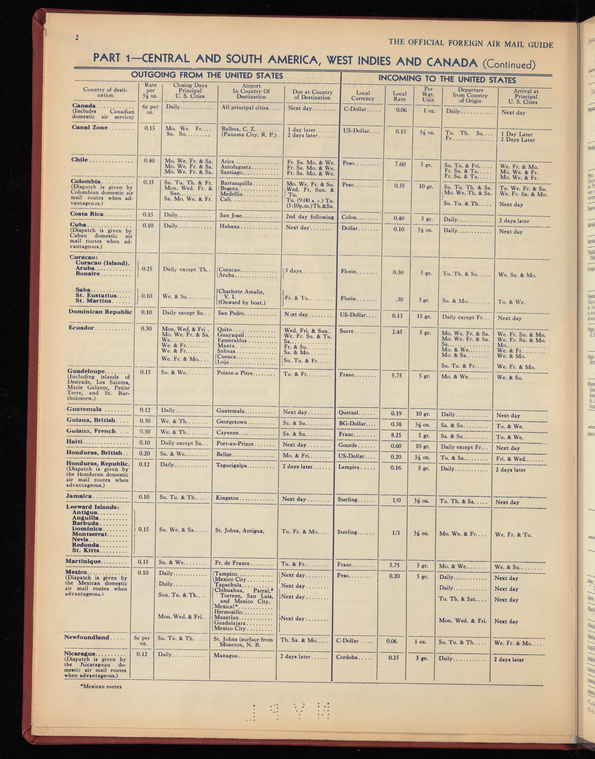 2
THE OFFICIAL FOREIGN AIR MAIL GUIDE
PART 1—CENTRAL AND SOUTH AMERICA, WEST INDIES AND CANADA (Continued)
OUTGOING FROM THE UNITED STATES
INCOMING TO THE UNITED STATES
Country of destination | Rate per ½ oz. | Closing Days Principal U. S. Cities | Airport In Country Of Destination | Due at Country of Destination | Local Currency | Local Rate | Per Wgt. Unit | Departure from Country of Origin | Arrival at Principal U. S. Cities
Canada (Includes Canadian domestic air service) 6c per oz. Daily All principal cities Next day C-Dollar 0.06 1 oz. Daily Next day
Canal Zone 0.15 Mo. We. Fr. Su. Balboa, C. Z. (Panama City, R. P.) 1 day later 2 days later US-Dollar 0.15 ½ oz. Tu. Th. Su. Fr. 1 Day Later 2 Days Later
Chile 0.40 Mo. We. Fr. & Sa. Arica Fr. Sa. Mo. & We. Peso 7.60 5 gr. Su. Tu. & Fri. We. Fr. & Mo.
Mo. We. Fr. & Sa. Antofagasta Fr. Sa. Mo. & We. Fr. Su. & Tu. Mo. We. & Fr.
Mo. We. Fr. & Sa. Santiago Fr. Sa. Mo. & We. Fr. Su. & Tu. Mo. We. & Fr.
Colombia (Dispatch is given by Colombian domestic air mail routes when advantageous.) 0.35 Su. Tu. Th. & Fr. Barranquilla Mo. We. Fr. & Su. Peso 0.35 10 gr. Su. Tu. Th. & Sa. Tu. We. Fr. & Su.
Mon. Wed. Fr. & Sun. Bogota Wed. Fr. Sun. & Tu. Mo. We. Th. & Sa. We. Fr. Sa. & Mo.
Medellin
Sa. Mo. We. & Fr. Cali Tu. (9:00 a. .) Tu. (5:10p.m.)Th.&Sa. Su. Tu. & Th. Next day
Costa Rica 0.15 Daily San Jose 2nd day following Colon 0.40 5 gr. Daily 2 days later
Cuba (Dispatch is given by Cuban domestic air mail routes when advantageous.) 0.10 Daily Habana Next day Dollar 0.10 ½ oz. Daily Next day
Curacao:
Curacao (Island).
Aruba
Bonaire 0.25 Daily except Th. Curacao Aruba 3 days Florin 0.30 5 gr. Tu. Th. & Sa. We. Sa. & Mo.
Saba
St. Eustatius
St. Martins 0.10 We. & Sa. Charlotte Amalie, V. I. (Onward by boat.) Fr. & Tu. Florin .10 5 gr. Su. & Mo. Tu. & We.
Dominican Republic 0.10 Daily except Sa. San Pedro Next day US-Dollar 0.13 15 gr. Daily except Fr. Next day
Ecuador 0.30 Mon. Wed. & Fri Quito Wed. Fri. & Sun. Sucre 2.45 5 gr. Mo. We. Fr. & Sa. We. Fr. Su. & Mo.
Mo. We. Fr. & Sa. Guayaquil We. Fr. Su. & Tu. Mo. We. Fr. & Sa. We. Fr. Su. & Mo.
We. Esmeraldas Sa. Mo.
We. & Fr. Manta Fr. & Su. Mo. & We. We. & Fr.
We. & Fr. Salinas Sa. & Mo. Mo. & Sa. We. & Mo.
We. Fr. & Mo. Cuenca Loja Su. Tu. & Fr. Su. Tu. & Fr. We. Fr. & Mo.
Guadeloupe (Including islands of Desirade, Les Saintes, Marie Galante, Petite Terre, and St. Bartholomew.) 0.15 Su. & We. Pointe-a Pitre Tu. & Fr. Franc 5.75 5 gr. Mo. & We. We. & Su.
Guatemala 0.12 Daily Guatemala Next day Quetzal 0.19 10 gr. Daily Next day
Guiana, British 0.30 We. & Th. Georgetown Sa. & Su. BG-Dollar 0.38 ½ oz. Sa. & Su. Tu. & We.
Guiana, French 0.30 We. & Th. Cayenne Sa. & Su. Franc 8.25 5 gr. Sa. & Su. Tu. & We.
Haiti 0.10 Daily except Sa. Port-au-Prince Next day Gourde 0.60 10 gr. Daily except Fr. Next day
Honduras, British 0.20 Sa. & We. Belize Mo. & Fri. US-Dollar 0.20 ½ oz. Tu. & Sa. Fri. & Wed.
Honduras, Republic. (Dispatch is given by the Honduran domestic air mail routes when advantageous.) 0.12 Daily Tegucigalpa 2 days later Lempira 0.16 5 gr. Daily 2 days later
Jamaica 0.10 Su. Tu. & Th. Kingston Next day Sterling 1/0 ½ oz. Tu. Th. & Sa. Next day
Leeward Islands:
Antigua
Anguilla
Barbuda
Dominica
Montserrat 0.15 Su. We. & Sa. St. Johns, Antigua, Tu. Fr. & Mo. Sterling 1/1 ½ oz. Mo. We. & Fr. We. Fr. & Tu.
Nevis
Redonda
St. Kitts
Martinique 0.15 Su. & We. Ft. de France Tu. & Fr. Franc 5.75 5 gr. Mo. & We. We. & Su.
Mexico (Dispatch is given by the Mexican domestic air mail routes when advantageous.) 0.10 Daily Tampico Mexico City Next day Peso 0.20 5 gr. Daily Next day
Daily Tapachula Next day Daily Next day
Sun. Tu. & Th. Chihuahua, Parral,* Torreon, San Luis, and Mexico City. Mexical* Next day Tu. Th. & Sat. Next day
Mon. Wed. & Fri. Hermosillo Mazatlan Guadalajara Mexico City Next day Mon. Wed. & Fri. Next day
Newfoundland 6c per oz. Su. Tu. & Th. St. Johns (surface from Moncton, N. B. Th. Sa. & Mo. C-Dollar 0.06 1 oz. Su. Tu. & Th. We. Fr. & Mo.
Nicaragua (Dispatch is given by the Nicaraguan domestic air mail routes when advantageous.) 0.12 Daily Managua 2 days later Cordoba 0.15 5 gr. Daily 2 days later
*Mexican routes